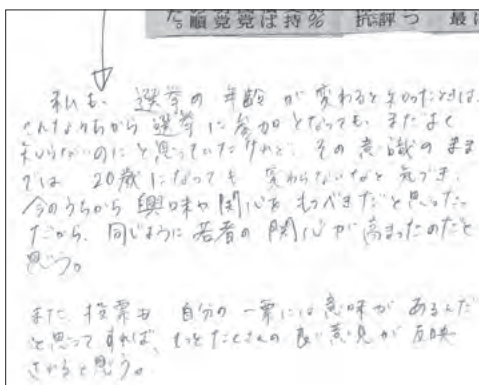 た。順 党党は 持% 抗評つ 最
私も、選挙の年齢が変わると知ったときは、
こんなうちから選挙に参加となっても、まだよく
知らないのにと思っていたけれど、その意識のまま
では 20歳になっても変わらないなと気づき、
今のうちから興味や関心をもつべきだと思った。
だから、同じように若者の関心が高まったのだと
思う。
また、投票も自分の一票には意味があるんだ
と思ってすれば、もっとたくさんの良い意見が反映
されると思う。